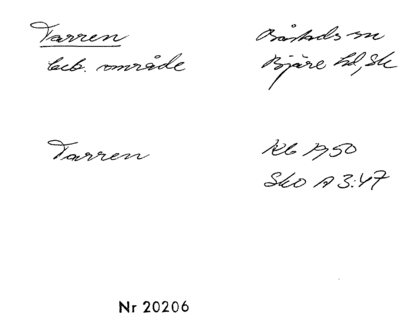 Tarren
beb. område
Båstads sn
Bjäre hd, Sk
Tarren
Kb 1950
SkO A3:47
Nr 20206